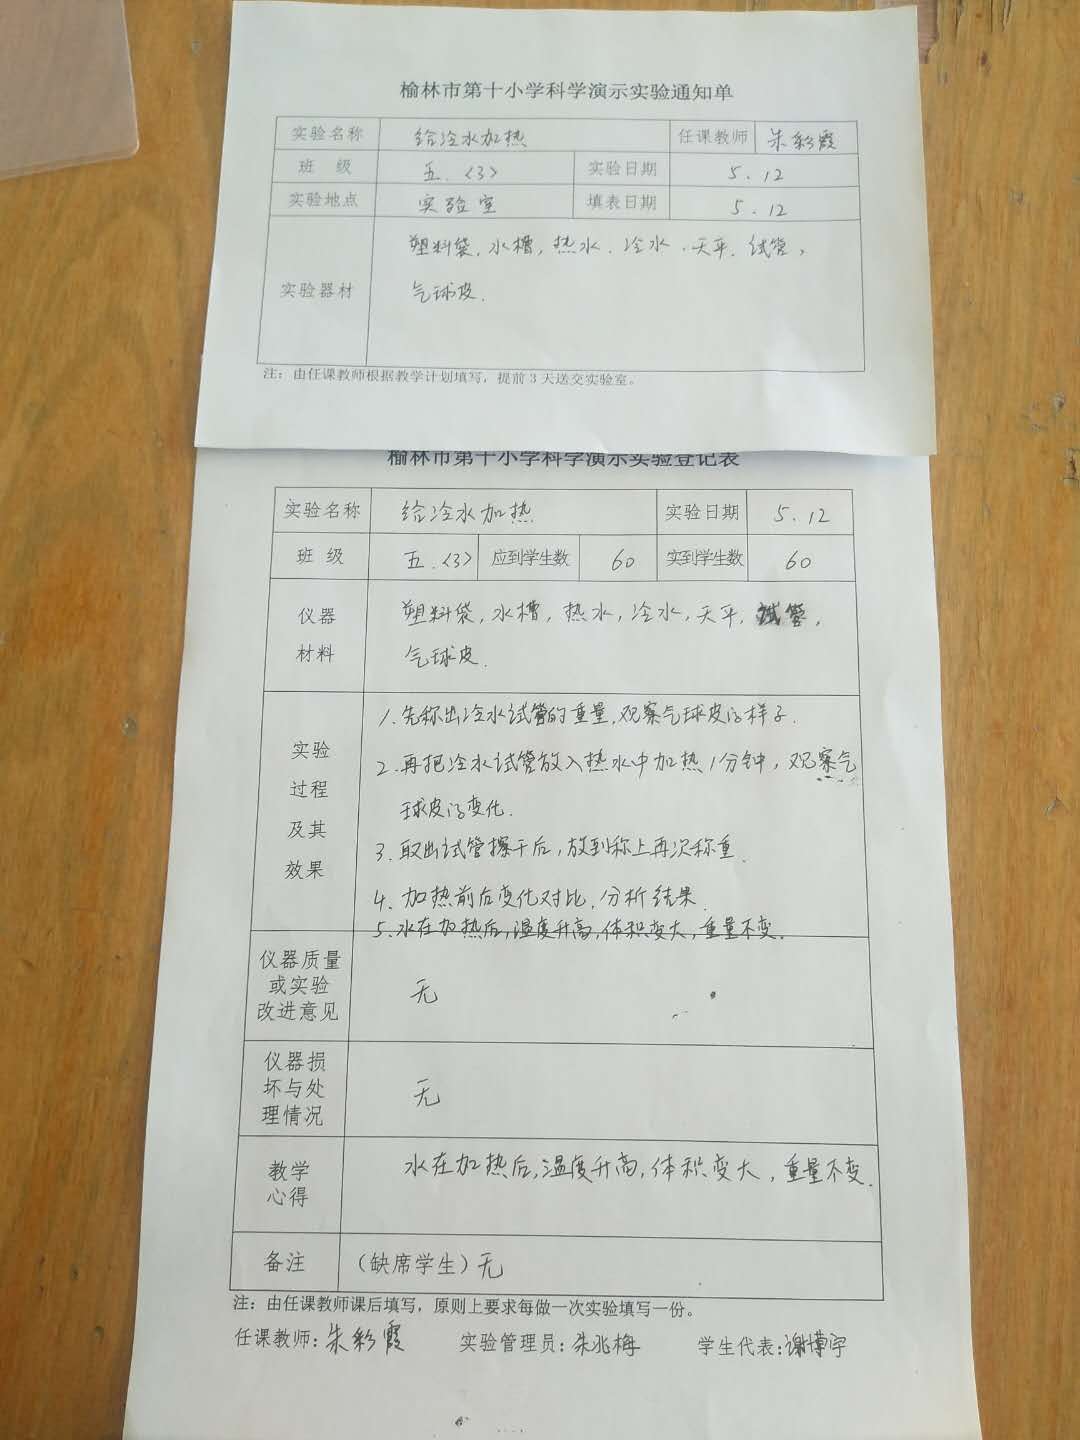 榆林市第十小学科学演示实验通知单
实验名称 给冷水加热 任课教师 朱彩霞
班 级 五.〈3〉 实验日期 5.12
实验地点 实验室 填表日期 5.12
塑料袋,水槽,热水.冷水.天平.试管,
实验器材 气球皮.
注：由任课教师根据教学计划填写，提前3天送交实验室。
榆林市第十小学科学演示实验登记表
实验名称 给冷水加热 实验日期 5.12
班 级 五.〈3〉 应到学生数 60 实到学生数 60
仪器 塑料袋,水槽,热水,冷水,天平,试管,
材料 气球皮.
1.先称出冷水试管的重量,观察气球皮的样子.
实验 2.再把冷水试管放入热水中加热1分钟,观察气
过程 球皮的变化.
及其 3.取出试管擦干后,放到称上再次称重.
效果 4.加热前后变化对比,分析结果.
5.水在加热后,温度升高,体积变大,重量不变.
仪器质量
或实验 无
改进意见
仪器损
坏与处 无
理情况
教学 水在加热后,温度升高,体积变大,重量不变.
心得
备注 （缺席学生）无
注：由任课教师课后填写，原则上要求每做一次实验填写一份。
任课教师:朱彩霞 实验管理员:朱兆梅 学生代表:谢博宇